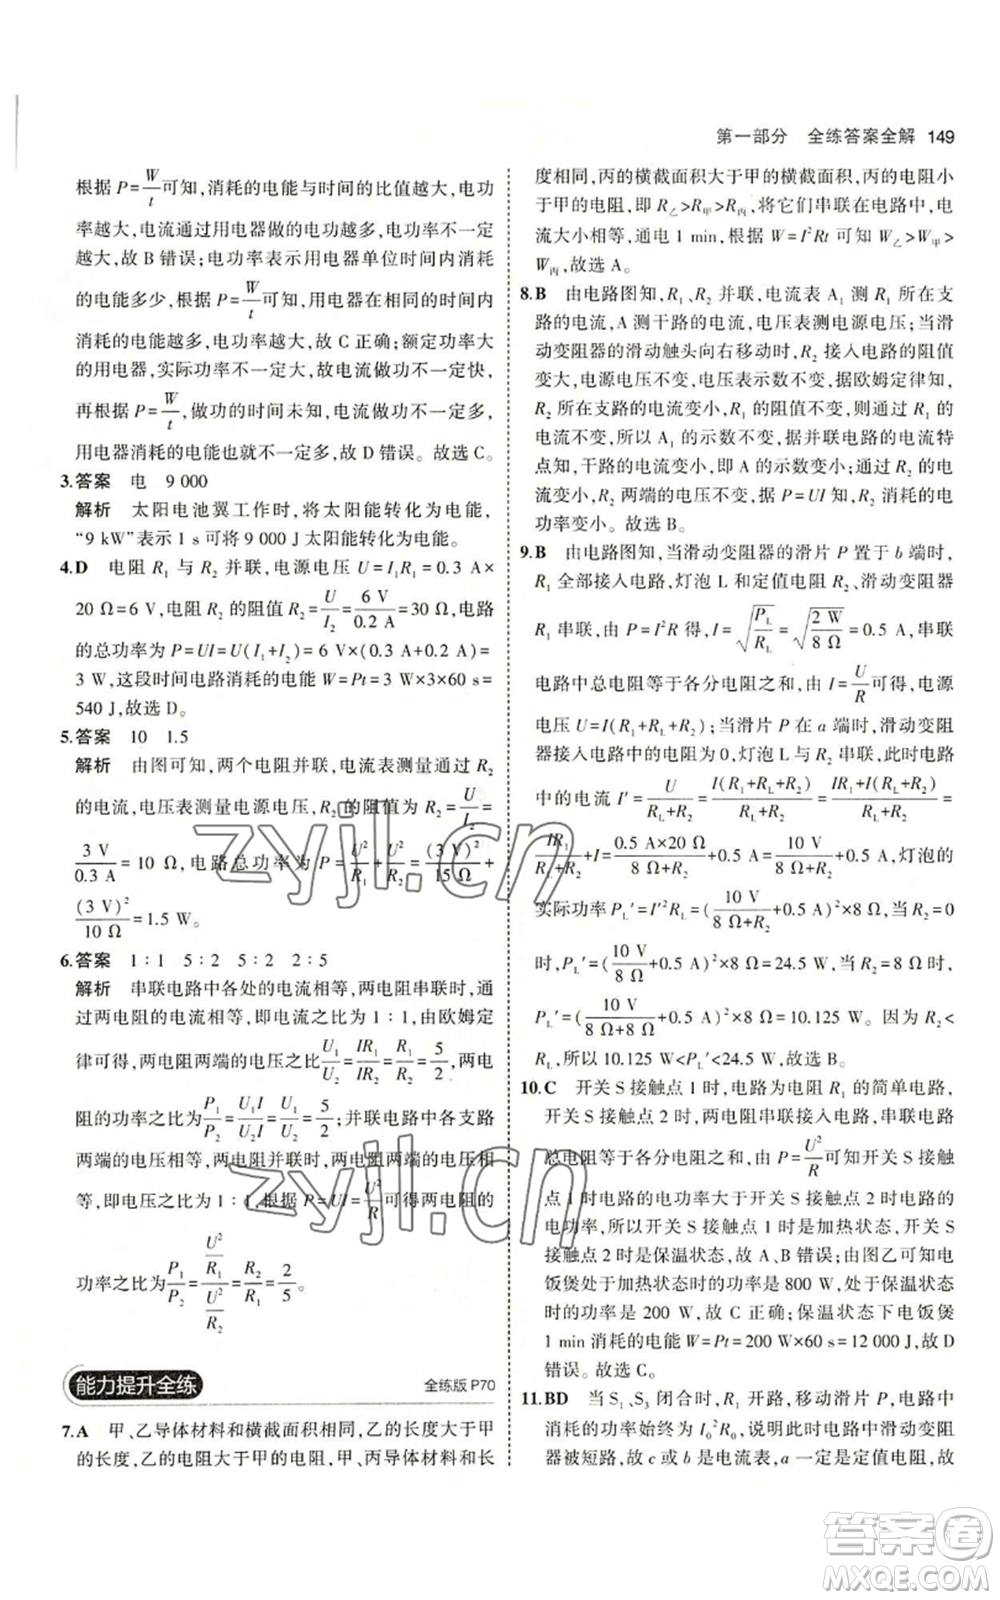 第一部分 全练答案全解 149
根据 P=W/t 可知,消耗的电能与时间的比值越大,电功
率越大,电流通过用电器做的电功越多,功率不一定
越大,故 B 错误;电功率表示用电器单位时间内消耗
的电能多少,根据 P=W/t 可知,用电器在相同的时间内
消耗的电能越多,电功率越大,故 C 正确;额定功率大
的用电器,实际功率不一定大,故电流做功不一定快,
再根据 P=W/t,做功的时间未知,电流做功不一定多,
用电器消耗的电能也就不一定多,故 D 错误。故选 C。
3.答案 电 9 000
解析 太阳电池翼工作时,将太阳能转化为电能,
“9 kW”表示 1 s 可将 9 000 J 太阳能转化为电能。
4.D 电阻 R₁ 与 R₂ 并联,电源电压 U=I₁R₁=0.3 A×
20 Ω=6 V,电阻 R₂ 的阻值 R₂=U/I₂=6 V/0.2 A=30 Ω,电路
的总功率为 P=UI=U(I₁+I₂)=6 V×(0.3 A+0.2 A)=
3 W,这段时间电路消耗的电能 W=Pt=3 W×3×60 s=
540 J,故选 D。
5.答案 10 1.5
解析 由图可知,两个电阻并联,电流表测量通过 R₂
的电流,电压表测量电源电压,R₂的阻值为 R₂=U/I₂=
3 V/0.3 A=10 Ω,电路总功率为 P=U²/R₁+U²/R₂=(3 V)²/15 Ω+
(3 V)²/10 Ω=1.5 W。
6.答案 1∶1 5∶2 5∶2 2∶5
解析 串联电路中各处的电流相等,两电阻串联时,通
过两电阻的电流相等,即电流之比为 1∶1,由欧姆定
律可得,两电阻两端的电压之比 U₁/U₂=IR₁/IR₂=R₁/R₂=5/2,两电
阻的功率之比为 P₁/P₂=U₁I/U₂I=U₁/U₂=5/2;并联电路中各支路
两端的电压相等,两电阻并联时,两电阻两端的电压相
等,即电压之比为 1∶1,根据 P=UI=U²/R可得两电阻的
功率之比为 P₁/P₂=(U²/R₁)/(U²/R₂)=R₂/R₁=2/5。
能力提升全练 全练版 P70
7.A 甲、乙导体材料和横截面积相同,乙的长度大于甲
的长度,乙的电阻大于甲的电阻,甲、丙导体材料和长
度相同,丙的横截面积大于甲的横截面积,丙的电阻小
于甲的电阻,即 R乙>R甲>R丙,将它们串联在电路中,电
流大小相等,通电 1 min,根据 W=I²Rt 可知 W乙>W甲>
W丙,故选 A。
8.B 由电路图知,R₁、R₂ 并联,电流表 A₁ 测 R₁ 所在支
路的电流,A 测干路的电流,电压表测电源电压;当滑
动变阻器的滑动触头向右移动时,R₂ 接入电路的阻值
变大,电源电压不变,电压表示数不变,据欧姆定律知,
R₂ 所在支路的电流变小,R₁ 的阻值不变,则通过 R₁ 的
电流不变,所以 A₁ 的示数不变,据并联电路的电流特
点知,干路的电流变小,即 A 的示数变小;在 R₂ 支路
中,R₂ 两端的电压不变,据 P=UI 知,R₂ 消耗的电
功率变小。故选 B。
9.B 由电路图知,当滑动变阻器的滑片 P 置于 b 端时,
R₁ 全部接入电路,灯泡 L 和定值电阻 R₂、滑动变阻器
R₁ 串联,由 P=I²R 得,I=√(P_L/R_L)=√(2 W/8 Ω)=0.5 A,串联
电路中总电阻等于各分电阻之和,由 I=U/R 得,电源
电压 U=I(R₁+R_L+R₂);当滑片 P 在 a 端时,滑动变阻
器接入电路中的电阻为 0,灯泡 L 与 R₂ 串联,此时电路
中的电流 I′=U/(R_L+R₂)=I(R₁+R_L+R₂)/(R_L+R₂)=(IR₁+I(R_L+R₂))/(R_L+R₂)=
IR₁/(R_L+R₂)+I=0.5 A×20 Ω/(8 Ω+R₂)+0.5 A=10 V/(8 Ω+R₂)+0.5 A,灯泡的
实际功率 P_L′=I′²R_L=(10 V/(8 Ω+R₂)+0.5 A)²×8 Ω,当 R₂=0
时,P_L′=(10 V/8 Ω+0.5 A)²×8 Ω=24.5 W,当 R₂=8 Ω 时,
P_L′=(10 V/(8 Ω+8 Ω)+0.5 A)²×8 Ω=10.125 W。因为 R₂<
R_L,所以 10.125 W<P_L′<24.5 W,故选 B。
10.C 开关 S 接触点 1 时,电路为电阻 R₁ 的简单电路,
开关 S 接触点 2 时,两电阻串联接入电路,串联电路
总电阻等于各分电阻之和,由 P=U²/R可知开关 S 接触
点 1 时电路的电功率大于开关 S 接触点 2 时电路的
电功率,所以开关 S 接触点 1 时是加热状态,开关 S
接触点 2 时是保温状态,故 A、B 错误;由图乙可知电
饭煲处于加热状态时的功率是 800 W,处于保温状态
时的功率是 200 W,故 C 正确;保温状态下电饭煲
1 min 消耗的电能 W=Pt=200 W×60 s=12 000 J,故 D
错误。故选 C。
11.BD 当 S₁、S₃ 闭合时,R₁ 开路,移动滑片 P,电路中
消耗的功率始终为 I₀²R₀,说明此时电路中滑动变阻
器被短路,故 c 或 b 是电流表,a 一定是定值电阻,故
zyjl.cn
zyjl.cn
答案圈
MXQE.COM